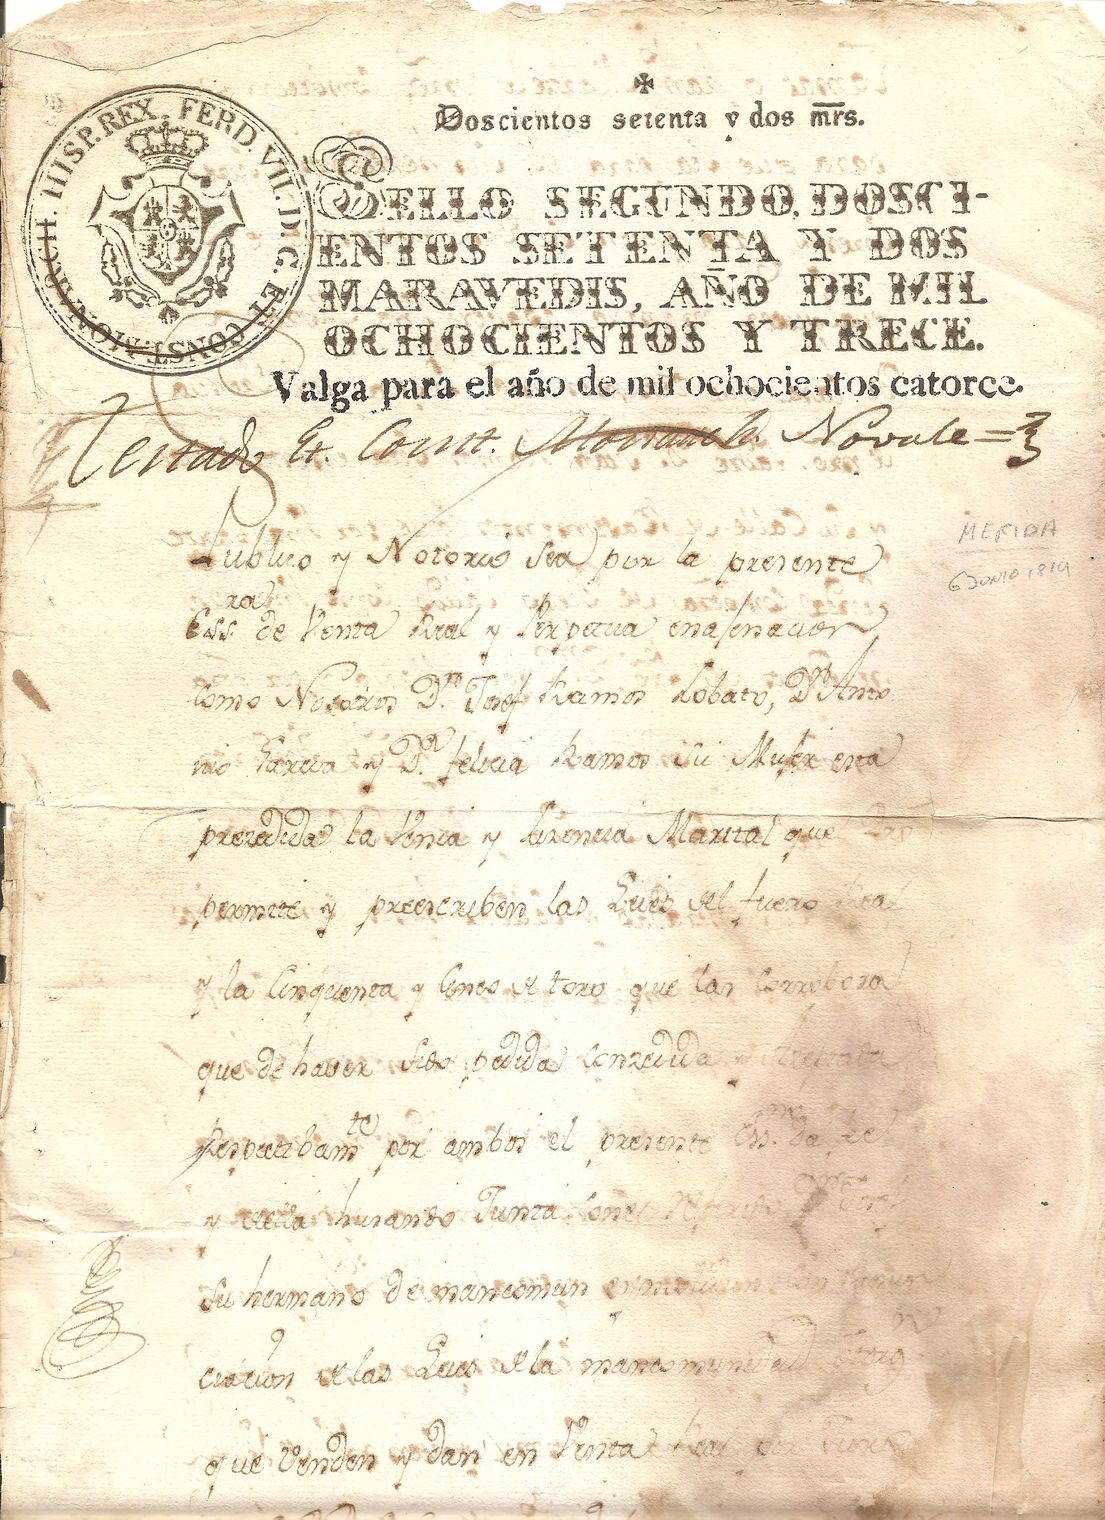 FERD. VII. D. G. ET CONST. MONARCH. HISP. REX.
Doscientos setenta y dos mrs.
SELLO SEGUNDO, DOSCI-
ENTOS SETENTA Y DOS
MARAVEDIS, AÑO DE MIL
OCHOCIENTOS Y TRECE.
Valga para el año de mil ochocientos catorce.
Testado Et. Const. Monarch. No vale =
MERIDA
6 JUNIO 1814
Publico y Notorio sea por la presente
Essra. de Venta Real y Perpetua enagenacion
como Nosotros Dn. Josef Ramos Lobato, Dn. Anto
nio Garcia y Da. Felicia Ramos su Muger esta
prezedida la Venia y lizencia Marital que
permite y preescriben las Leies del fuero Real
y la Cinquenta y Cinco de toro que las Corrobora
que de haver sido pedida conzedida y Azeptada
Respectibamte. por ambos el presente Essno. da fe
y de ella husando Junta con el
su hermano de mancomun
ciacion de las Leies de la mancomunidad
que Venden y dan en Venta Real por Juro